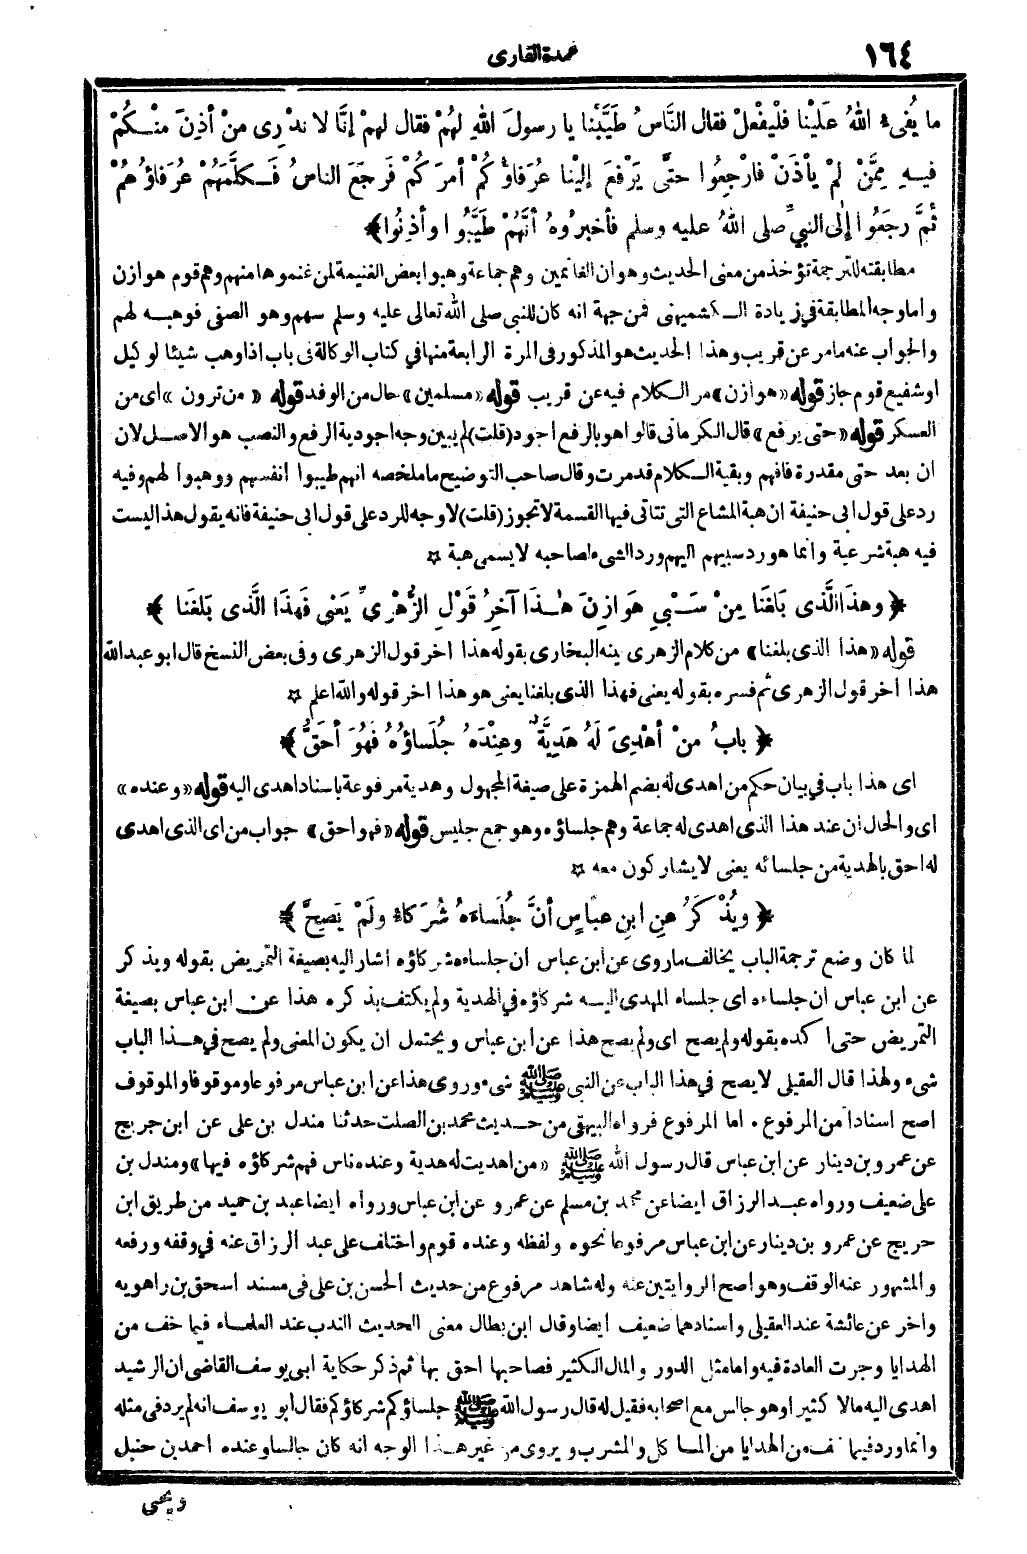 ١٦٤
عمدة القارى
ما يُفِىءُ اللهُ عَلَيْنا فَلْيَفْعَلْ فقال النَّاسُ طَيَّبْنا يا رسولَ اللهِ لهُمْ فقال لهمْ إنَّا لا نَدْرِى منْ أذِنَ منْكُمْ
فيهِ مِمَّنْ لمْ يأذَنْ فارْجِعُوا حتَّى يَرْفَعَ إلَيْنا عُرَفاؤُكُمْ أمرَكُمْ فَرجَعَ الناسُ فَكلَّمَهُمْ عُرَفاؤُهُمْ
ثمَّ رجَعُوا إلَى النبيِّ صلى اللهُ عليه وسلم فأخبرُوهُ أنَّهُمْ طَيَّبُوا وأذِنُوا﴾
مطابقته للترجمة تؤخذ من معنى الحديث وهو ان الغانمين وهم جماعة وهبوا بعض الغنيمة لمن غنموها منهم وهم قوم هوازن
واما وجه المطابقة في زيادة الكشميهنى فمن جهة انه كان للنبى صلى الله تعالى عليه وسلم سهم وهو الصفى فوهبه لهم
والجواب عنه مامر عن قريب وهذا الحديث هو المذكور فى المرة الرابعة منها في كتاب الوكالة فى باب اذا وهب شيئا لوكيل
او شفيع قوم جاز قوله «هوازن» مر الكلام فيه عن قريب قوله «مسلمين» حال من الوفد قوله « من ترون » اى من
العسكر قوله «حتى يرفع» قال الكرمانى قالوا هو بالرفع اجود (قلت) لم يبين وجه اجودية الرفع والنصب هو الاصل لان
ان بعد حتى مقدرة فافهم وبقية الكلام قدمرت وقال صاحب التوضيح ما ملخصه انهم طيبوا أنفسهم ووهبوا لهم وفيه
رد على قول ابى حنيفة ان هبة المشاع التى تتاتى فيها القسمة لا تجوز (قلت) لا وجه للرد على قول ابى حنيفة فانه يقول هذا ليست
فيه هبة شرعية وانما هو رد سبيهم اليهم ورد الشىء لصاحبه لا يسمى هبة ۞
﴿ وهذَا الَّذى بَلَغَنَا مِنْ سَبْيِ هَوازِنَ هٰذَا آخِرُ قَوْلِ الزُّهْرِىِّ يَعْنى فَهذَا الَّذى بَلغَنَا ﴾
قوله «هذا الذى بلغنا» من كلام الزهرى بينه البخارى بقوله هذا اخر قول الزهرى وفى بعض النسخ قال ابو عبد الله
هذا اخر قول الزهرى ثم فسره بقوله يعنى فهذا الذى بلغنا يعنى هو هذا اخر قوله والله اعلم ۞
﴿ بابُ منْ أُهْدِىَ لَهُ هَدِيَّةٌ وعِنْدَهُ جُلَساؤُهُ فَهُوَ أحَقُّ ﴾
اى هذا باب في بيان حكم من اهدى له بضم الهمزة على صيغة المجهول وهدية مرفوعة باسناد اهدى اليه قوله «وعنده»
اى والحال ان عند هذا الذى اهدى له جماعة وهم جلساؤه وهو جمع جليس قوله «فهو احق» جواب من اى الذى اهدى
له احق بالهدية من جلسائه يعنى لا يشاركون معه ۞
﴿ ويُذْكَرُ عنِ ابنِ عبَّاسٍ أنَّ جُلَساءَهُ شُرَكاءُ ولَمْ يَصِحَّ ﴾
لما كان وضع ترجمة الباب يخالف ماروى عن ابن عباس ان جلساءه شركاؤه اشار اليه بصيغة التمريض بقوله ويذكر
عن ابن عباس ان جلساءه اى جلساء المهدى اليه شركاؤه في الهدية ولم يكتف بذكره هذا عن ابن عباس بصيغة
التمريض حتى اكده بقوله ولم يصح اى ولم يصح هذا عن ابن عباس ويحتمل ان يكون المعنى ولم يصح في هذا الباب
شىء ولهذا قال العقيلى لا يصح في هذا الباب عن النبى ﷺ شىء وروى هذا عن ابن عباس مرفوعا وموقوفا والموقوف
اصح اسنادا من المرفوع • اما المرفوع فرواه البيهقى من حديث محمد بن الصلت حدثنا مندل بن على عن ابن جريج
عن عمرو بن دينار عن ابن عباس قال رسول الله ﷺ «من اهديت له هدية وعنده ناس فهم شركاؤه فيها» ومندل بن
على ضعيف ورواه عبد الرزاق ايضا عن محمد بن مسلم عن عمرو عن ابن عباس ورواه ايضا عبد بن حميد من طريق ابن
جريج عن عمرو بن دينار عن ابن عباس مرفوعا نحوه ولفظه وعنده قوم واختلف على عبد الرزاق عنه في وقفه ورفعه
والمشهور عنه الوقف وهو اصح الروايتين عنه وله شاهد مرفوع من حديث الحسن بن على فى مسند اسحق بن راهويه
واخر عن عائشة عند العقيلى واسنادهما ضعيف ايضا وقال ابن بطال معنى الحديث الندب عند العلماء فيما خف من
الهدايا وجرت العادة فيه واما مثل الدور والمال الكثير فصاحبها احق بها ثم ذكر حكاية ابى يوسف القاضى ان الرشيد
اهدى اليه مالا كثيرا وهو جالس مع اصحابه فقيل له قال رسول الله ﷺ جلساؤكم شركاؤكم فقال أبو يوسف انه لم يرد فى مثله
وانما ورد فيما خف من الهدايا من المأكل والمشرب ويروى من غير هذا الوجه انه كان جالسا وعنده احمد بن حنبل
ويحيى